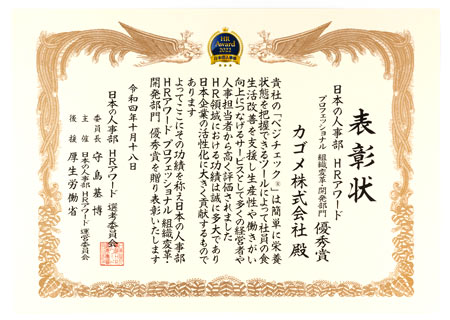 HR
Award
2022
日本の人事部
表彰状
日本の人事部 HRアワード
プロフェッショナル 組織変革・開発部門 優秀賞
カゴメ株式会社 殿
貴社の「ベジチェック®」は簡単に栄養
状態を把握できるツールによって社員の食
生活改善を支援し生産性や働きがい
向上につなげるサービスとして多くの経営者や
人事担当者から高く評価されました
HR領域における功績は誠に多大であり
日本企業の活性化に大きく貢献するもので
あります
よってここにその功績を称え日本の人事部
HRアワード プロフェッショナル 組織変革・
開発部門 優秀賞を贈り表彰いたします
令和四年十月十八日
日本の人事部 HRアワード 選考委員会
委員長 守島基博
主催 日本の人事部「HRアワード」運営委員会
後援 厚生労働省